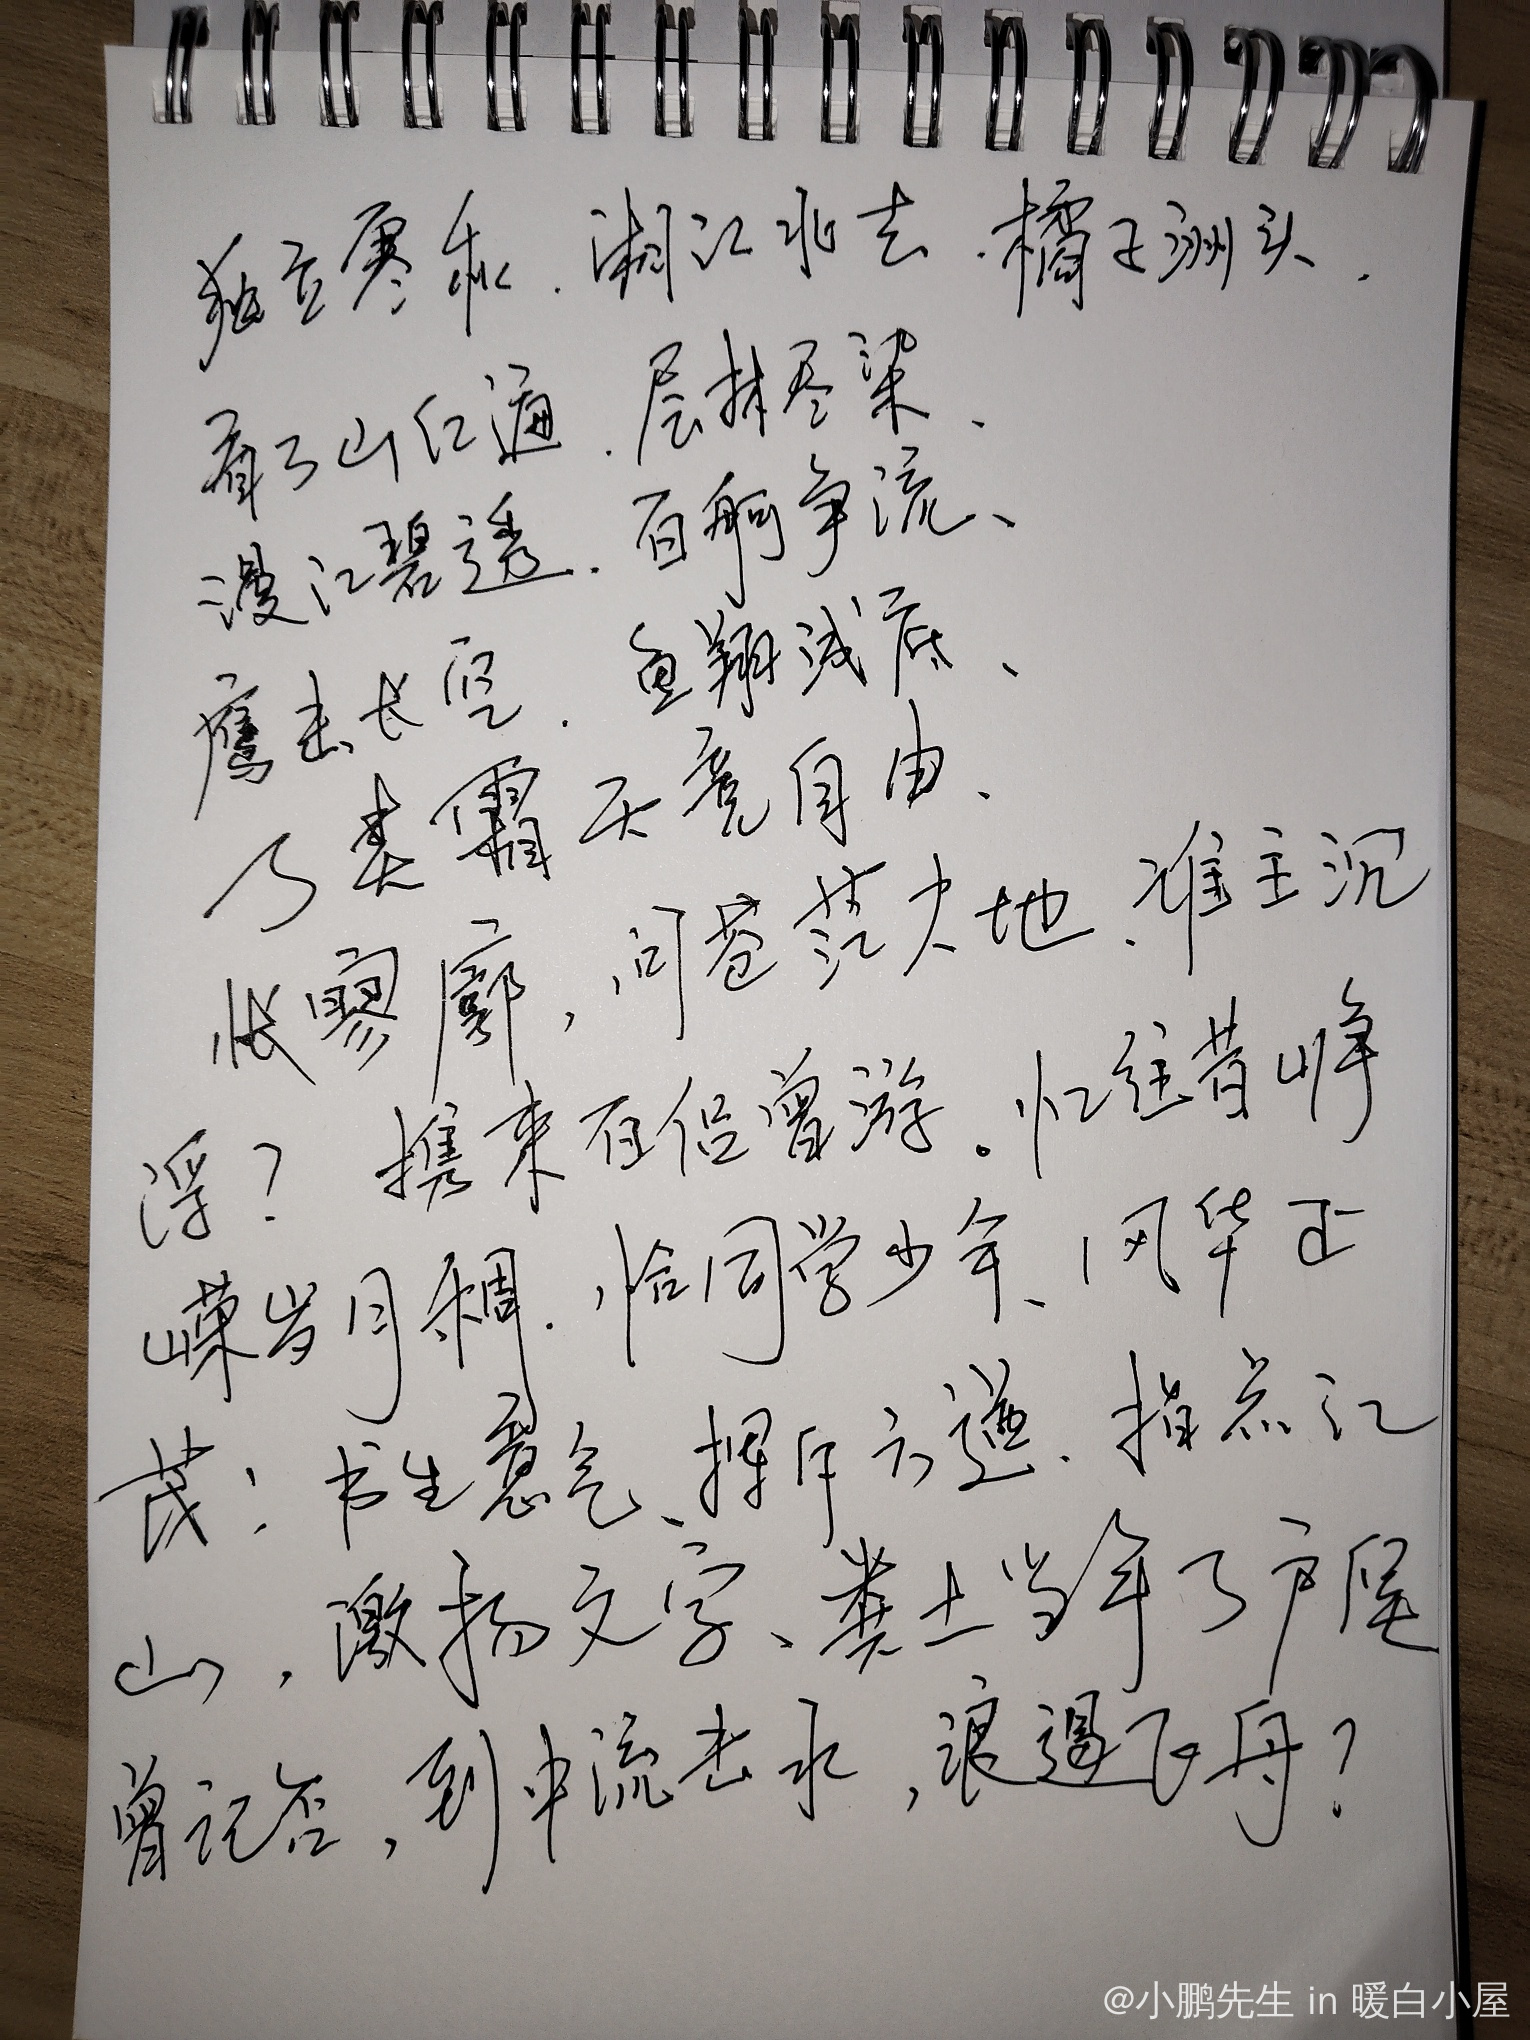 独立寒秋.湘江北去.橘子洲头.
看万山红遍.层林尽染、
漫江碧透.百舸争流、
鹰击长空.鱼翔浅底、
万类霜天竞自由、
怅寥廓,问苍茫大地.谁主沉
浮?携来百侣曾游。忆往昔峥
嵘岁月稠.恰同学少年、风华正
茂;书生意气、挥斥方遒.指点江
山,激扬文字、粪土当年万户侯
曾记否,到中流击水,浪遏飞舟?
@小鹏先生 in 暖白小屋